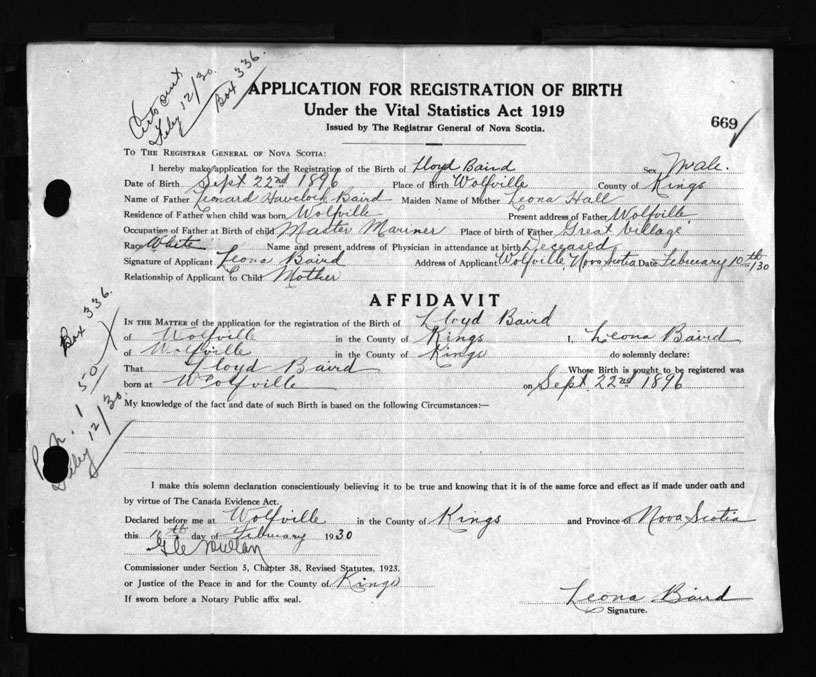 Feby 12/30.
Box 336.
APPLICATION FOR REGISTRATION OF BIRTH
Under the Vital Statistics Act 1919
Issued by The Registrar General of Nova Scotia.
669
TO THE REGISTRAR GENERAL OF NOVA SCOTIA:
I hereby make application for the Registration of the Birth of Lloyd Baird Sex Male.
Date of Birth Sept 22nd 1896 Place of Birth Wolfville County of Kings
Name of Father Leonard Havelock Baird Maiden Name of Mother Leona Hall
Residence of Father when child was born Wolfville Present address of Father Wolfville
Occupation of Father at Birth of child Master Mariner Place of birth of Father Great Village
Race White Name and present address of Physician in attendance at birth Deceased
Signature of Applicant Leona Baird Address of Applicant Wolfville, Nova Scotia Date February 10th/30
Relationship of Applicant to Child Mother
AFFIDAVIT
Box 336.
IN THE MATTER of the application for the registration of the Birth of Lloyd Baird
of Wolfville in the County of Kings I, Leona Baird
of Wolfville in the County of Kings do solemnly declare:
That Lloyd Baird Whose Birth is sought to be registered was
born at Wolfville on Sept. 22nd 1896
1.50
Feby 12/30
My knowledge of the fact and date of such Birth is based on the following Circumstances:—
I make this solemn declaration conscientiously believing it to be true and knowing that it is of the same force and effect as if made under oath and
by virtue of The Canada Evidence Act.
Declared before me at Wolfville in the County of Kings and Province of Nova Scotia
this 10th day of February 1930
Commissioner under Section 5, Chapter 38, Revised Statutes, 1923.
or Justice of the Peace in and for the County of Kings
If sworn before a Notary Public affix seal.
Leona Baird
Signature.